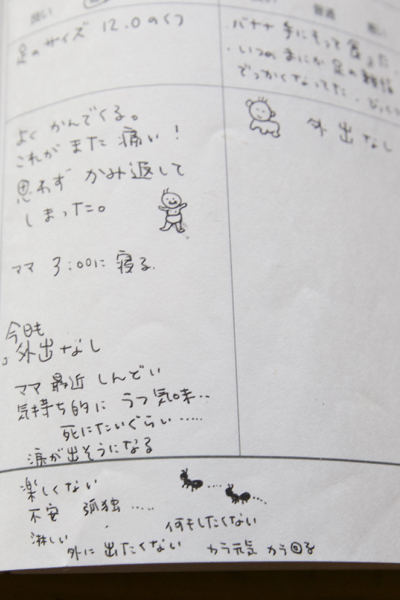 良い
普通
悪い
足のサイズ 12.0のくつ
バナナ 手にもって食べた。
いつのまにか 足の親指
でっかくなってた。びっくり
よく かんでくる。
これが また 痛い!
思わず かみ返して
しまった。
ママ 3:00に 寝る。
外出なし
今日も
外出なし
ママ 最近 しんどい
気持ち的に うつ気味..
死にたいぐらい .....
涙が出そうになる
楽しくない
不安 孤独 .....
何もしたくない
淋しい
外に 出たくない カラ元気 カラ回る